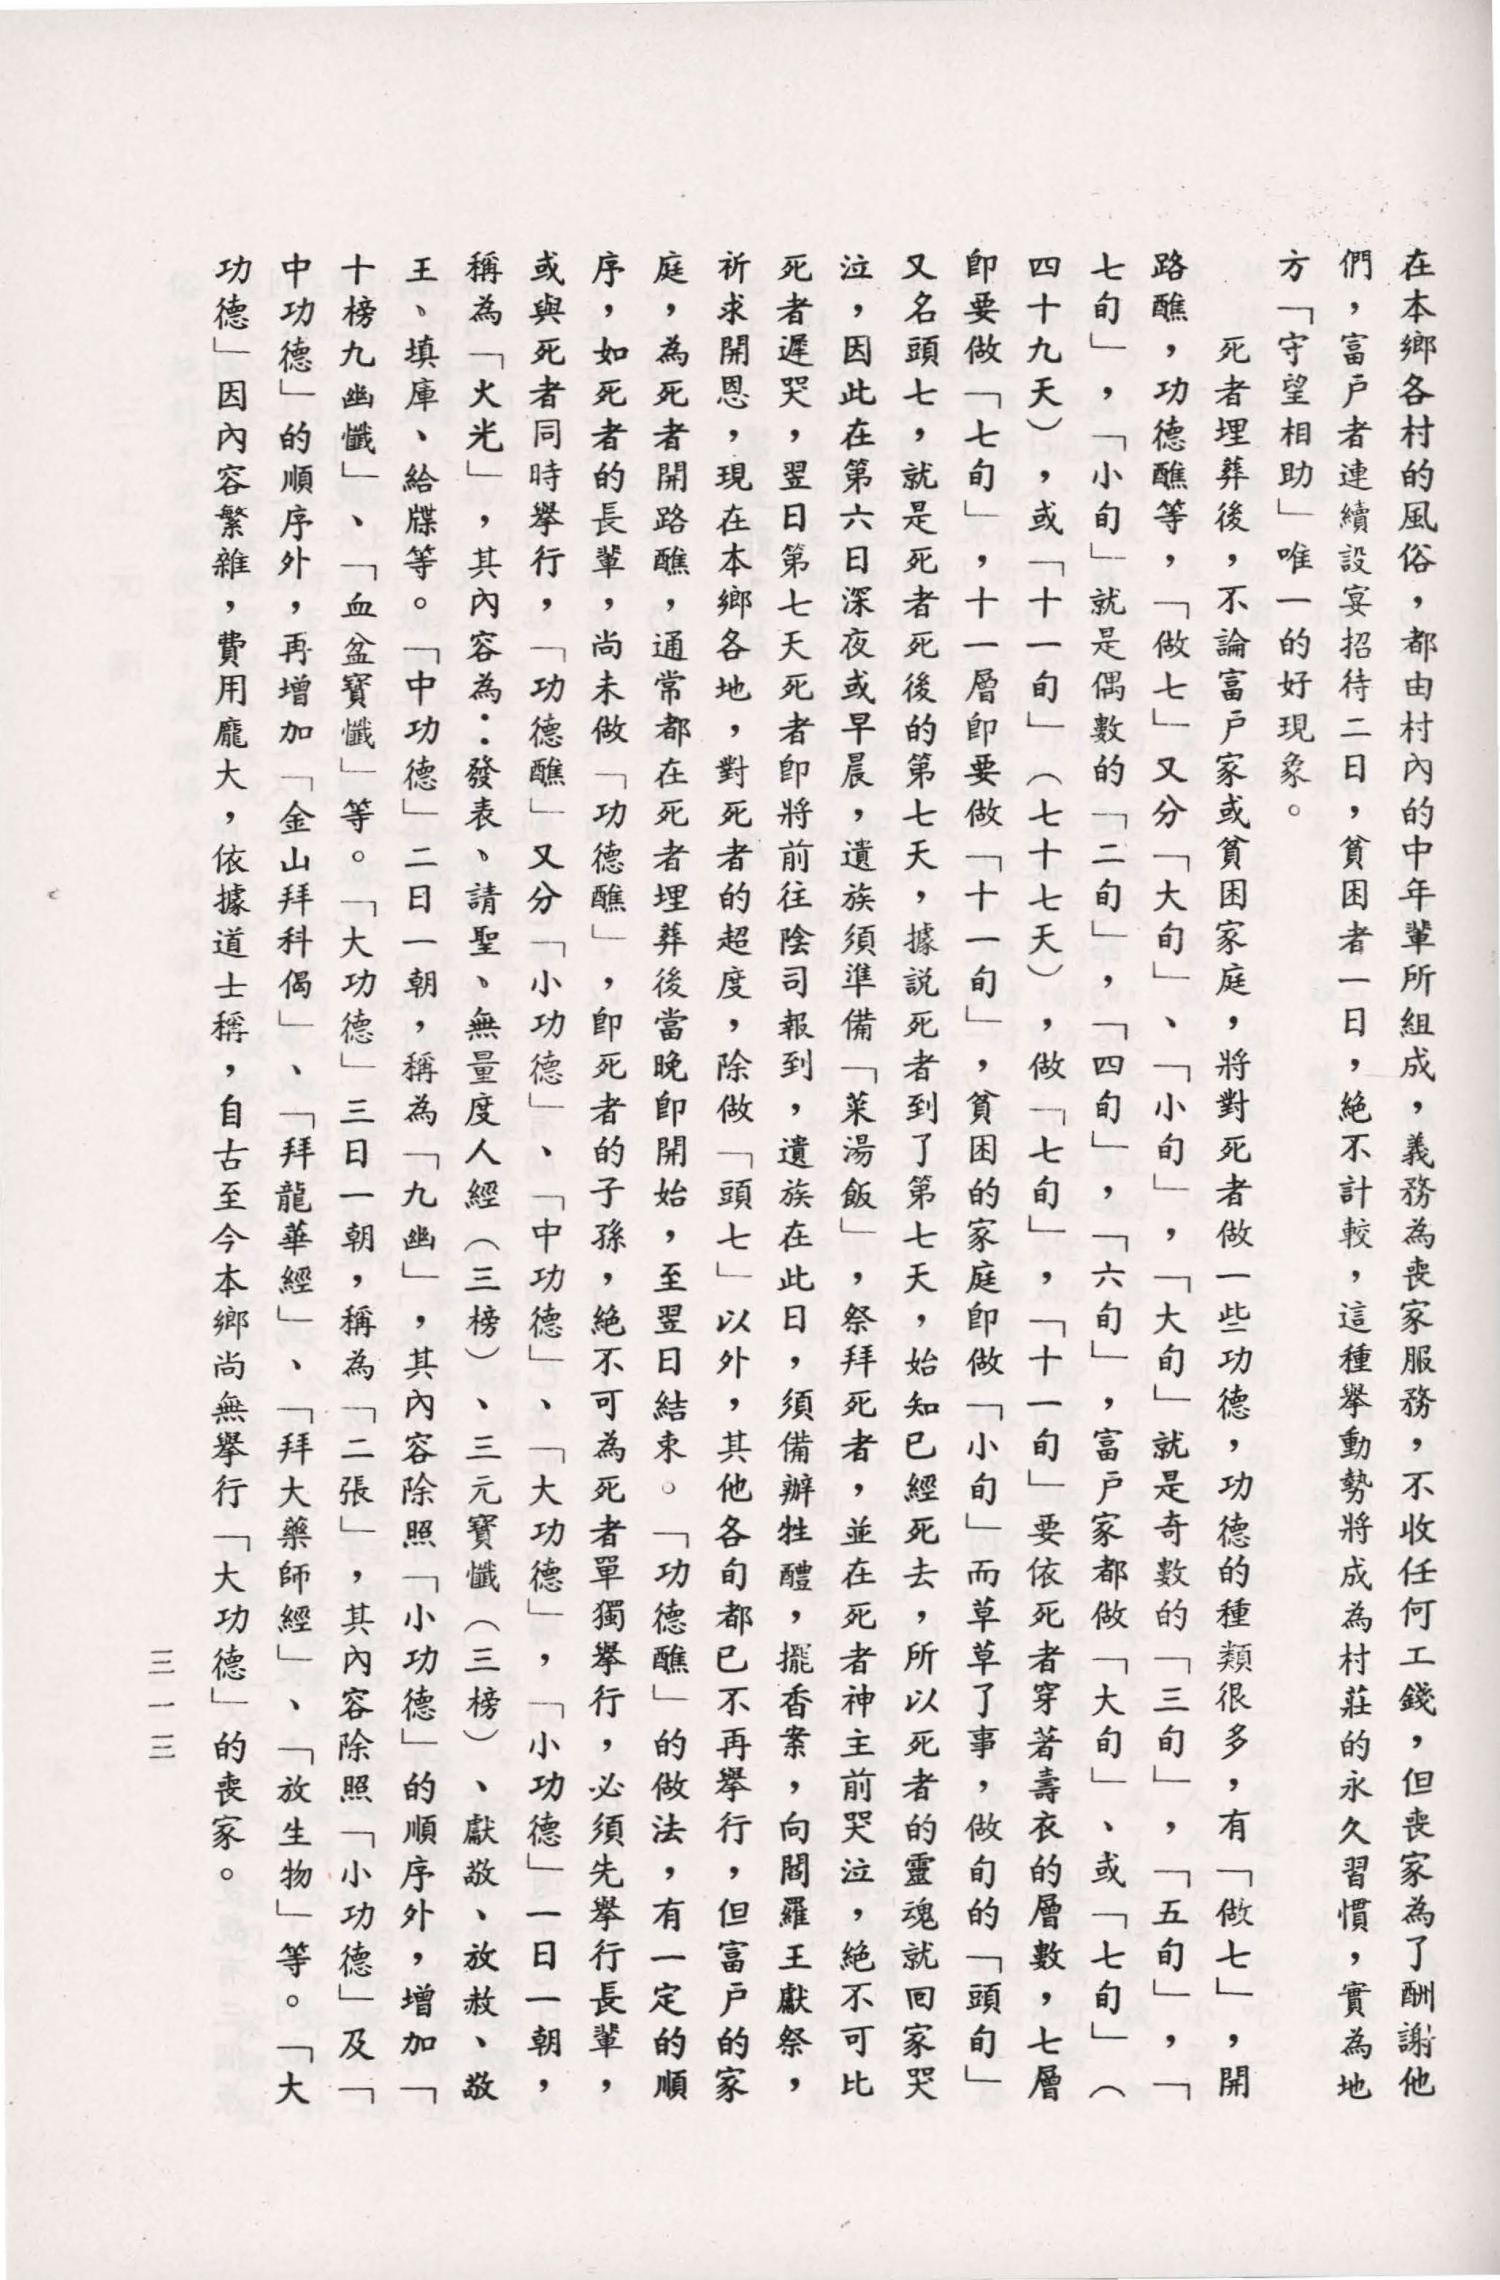 在本鄉各村的風俗，都由村內的中年輩所組成，義務為喪家服務，不收任何工錢，但喪家為了酬謝他
們，富戶者連續設宴招待二日，貧困者一日，絕不計較，這種舉動勢將成為村莊的永久習慣，實為地
方「守望相助」唯一的好現象。
死者埋葬後，不論富戶家或貧困家庭，將對死者做一些功德，功德的種類很多，有「做七」，開
路醮，功德醮等，「做七」又分「大旬」、「小旬」，「大旬」就是奇數的「三旬」，「五旬」，「
七旬」，「小旬」就是偶數的「二旬」，「四旬」，「六旬」，富戶家都做「大旬」、或「七旬」（
四十九天），或「十一旬」（七十七天），做「七旬」，「十一旬」要依死者穿著壽衣的層數，七層
即要做「七旬」，十一層即要做「十一旬」，貧困的家庭即做「小旬」而草草了事，做旬的「頭旬」
又名頭七，就是死者死後的第七天，據説死者到了第七天，始知已經死去，所以死者的靈魂就回家哭
泣，因此在第六日深夜或早晨，遺族須準備「菜湯飯」，祭拜死者，並在死者神主前哭泣，絕不可比
死者遲哭，翌日第七天死者即將前往陰司報到，遺族在此日，須備辦牲醴，擺香案，向閻羅王獻祭，
祈求開恩，現在本鄉各地，對死者的超度，除做「頭七」以外，其他各旬都已不再舉行，但富戶的家
庭，為死者開路醮，通常都在死者埋葬後當晚即開始，至翌日結束。「功德醮」的做法，有一定的順
序，如死者的長輩，尚未做「功德醮」，即死者的子孫，絕不可為死者單獨舉行，必須先舉行長輩，
或與死者同時舉行，「功德醮」又分「小功德」、「中功德」、「大功德」，「小功德」一日一朝，
稱為「火光」，其內容為：發表、請聖、無量度人經（三榜）、三元寶懺（三榜）、獻敬、放赦、敬
王、填庫、給牒等。「中功德」二日一朝，稱為「九幽」，其內容除照「小功德」的順序外，增加「
十榜九幽懺」、「血盆寶懺」等。「大功德」三日一朝，稱為「二張」，其內容除照「小功德」及「
中功德」的順序外，再增加「金山拜科偈」、「拜龍華經」、「拜大藥師經」、「放生物」等。「大
功德」因內容繁雜，費用龐大，依據道士稱，自古至今本鄉尚無舉行「大功德」的喪家。
三一三